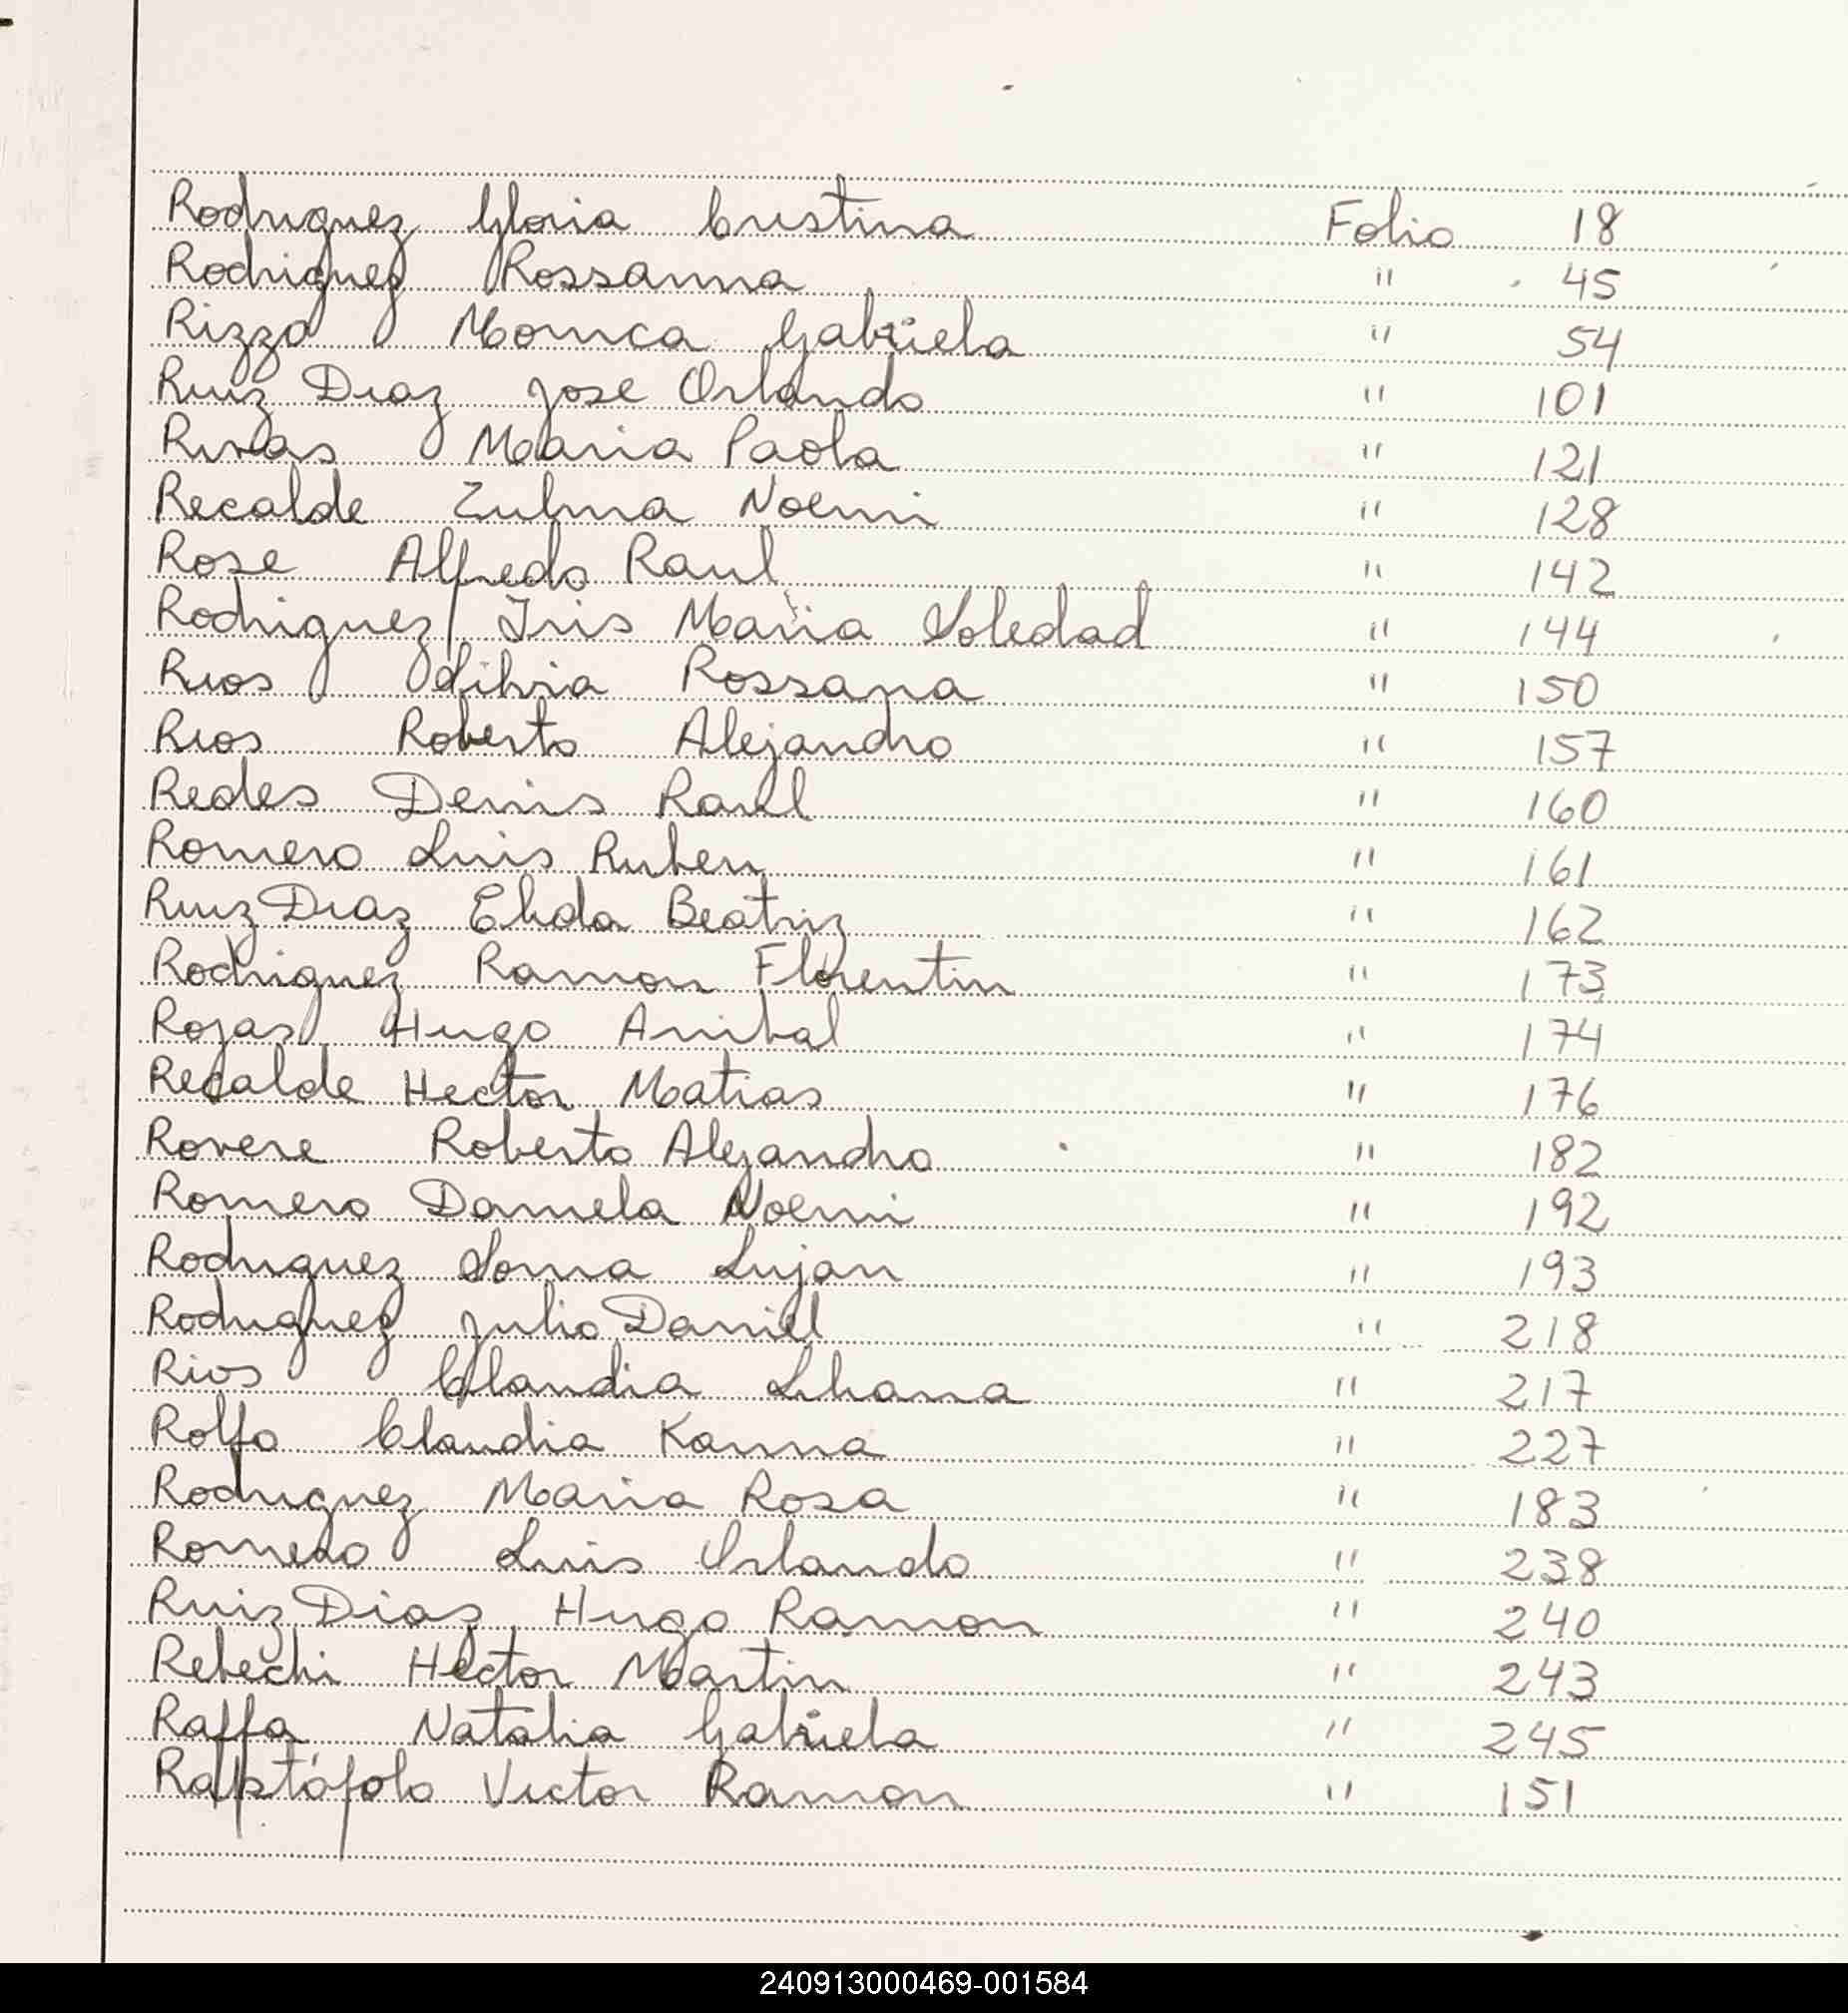 Rodriguez Gloria Cristina Folio 18
Rodriguez Rossanna " 45
Rizzo Monica Gabriela " 54
Ruiz Diaz Jose Orlando " 101
Rivas Maria Paola " 121
Recalde Zulma Noemi " 128
Rose Alfredo Raul " 142
Rodriguez Iris Maria Soledad " 144
Rios Silvia Rossana " 150
Rios Roberto Alejandro " 157
Redes Denis Raul " 160
Romero Luis Ruben " 161
Ruiz Diaz Elida Beatriz " 162
Rodriguez Ramon Florentin " 173
Rojas Hugo Anibal " 174
Recalde Hector Matias " 176
Rovere Roberto Alejandro " 182
Romero Daniela Noemi " 192
Rodriguez Sonia Lujan " 193
Rodriguez Julio Daniel " 218
Rios Claudia Liliana " 217
Rolfo Claudia Karina " 227
Rodriguez Maria Rosa " 183
Romero Luis Orlando " 238
Ruiz Dias Hugo Ramon " 240
Rebechi Hector Martin " 243
Raffa Natalia Gabriela " 245
Victor Ramon " 151
240913000469-001584